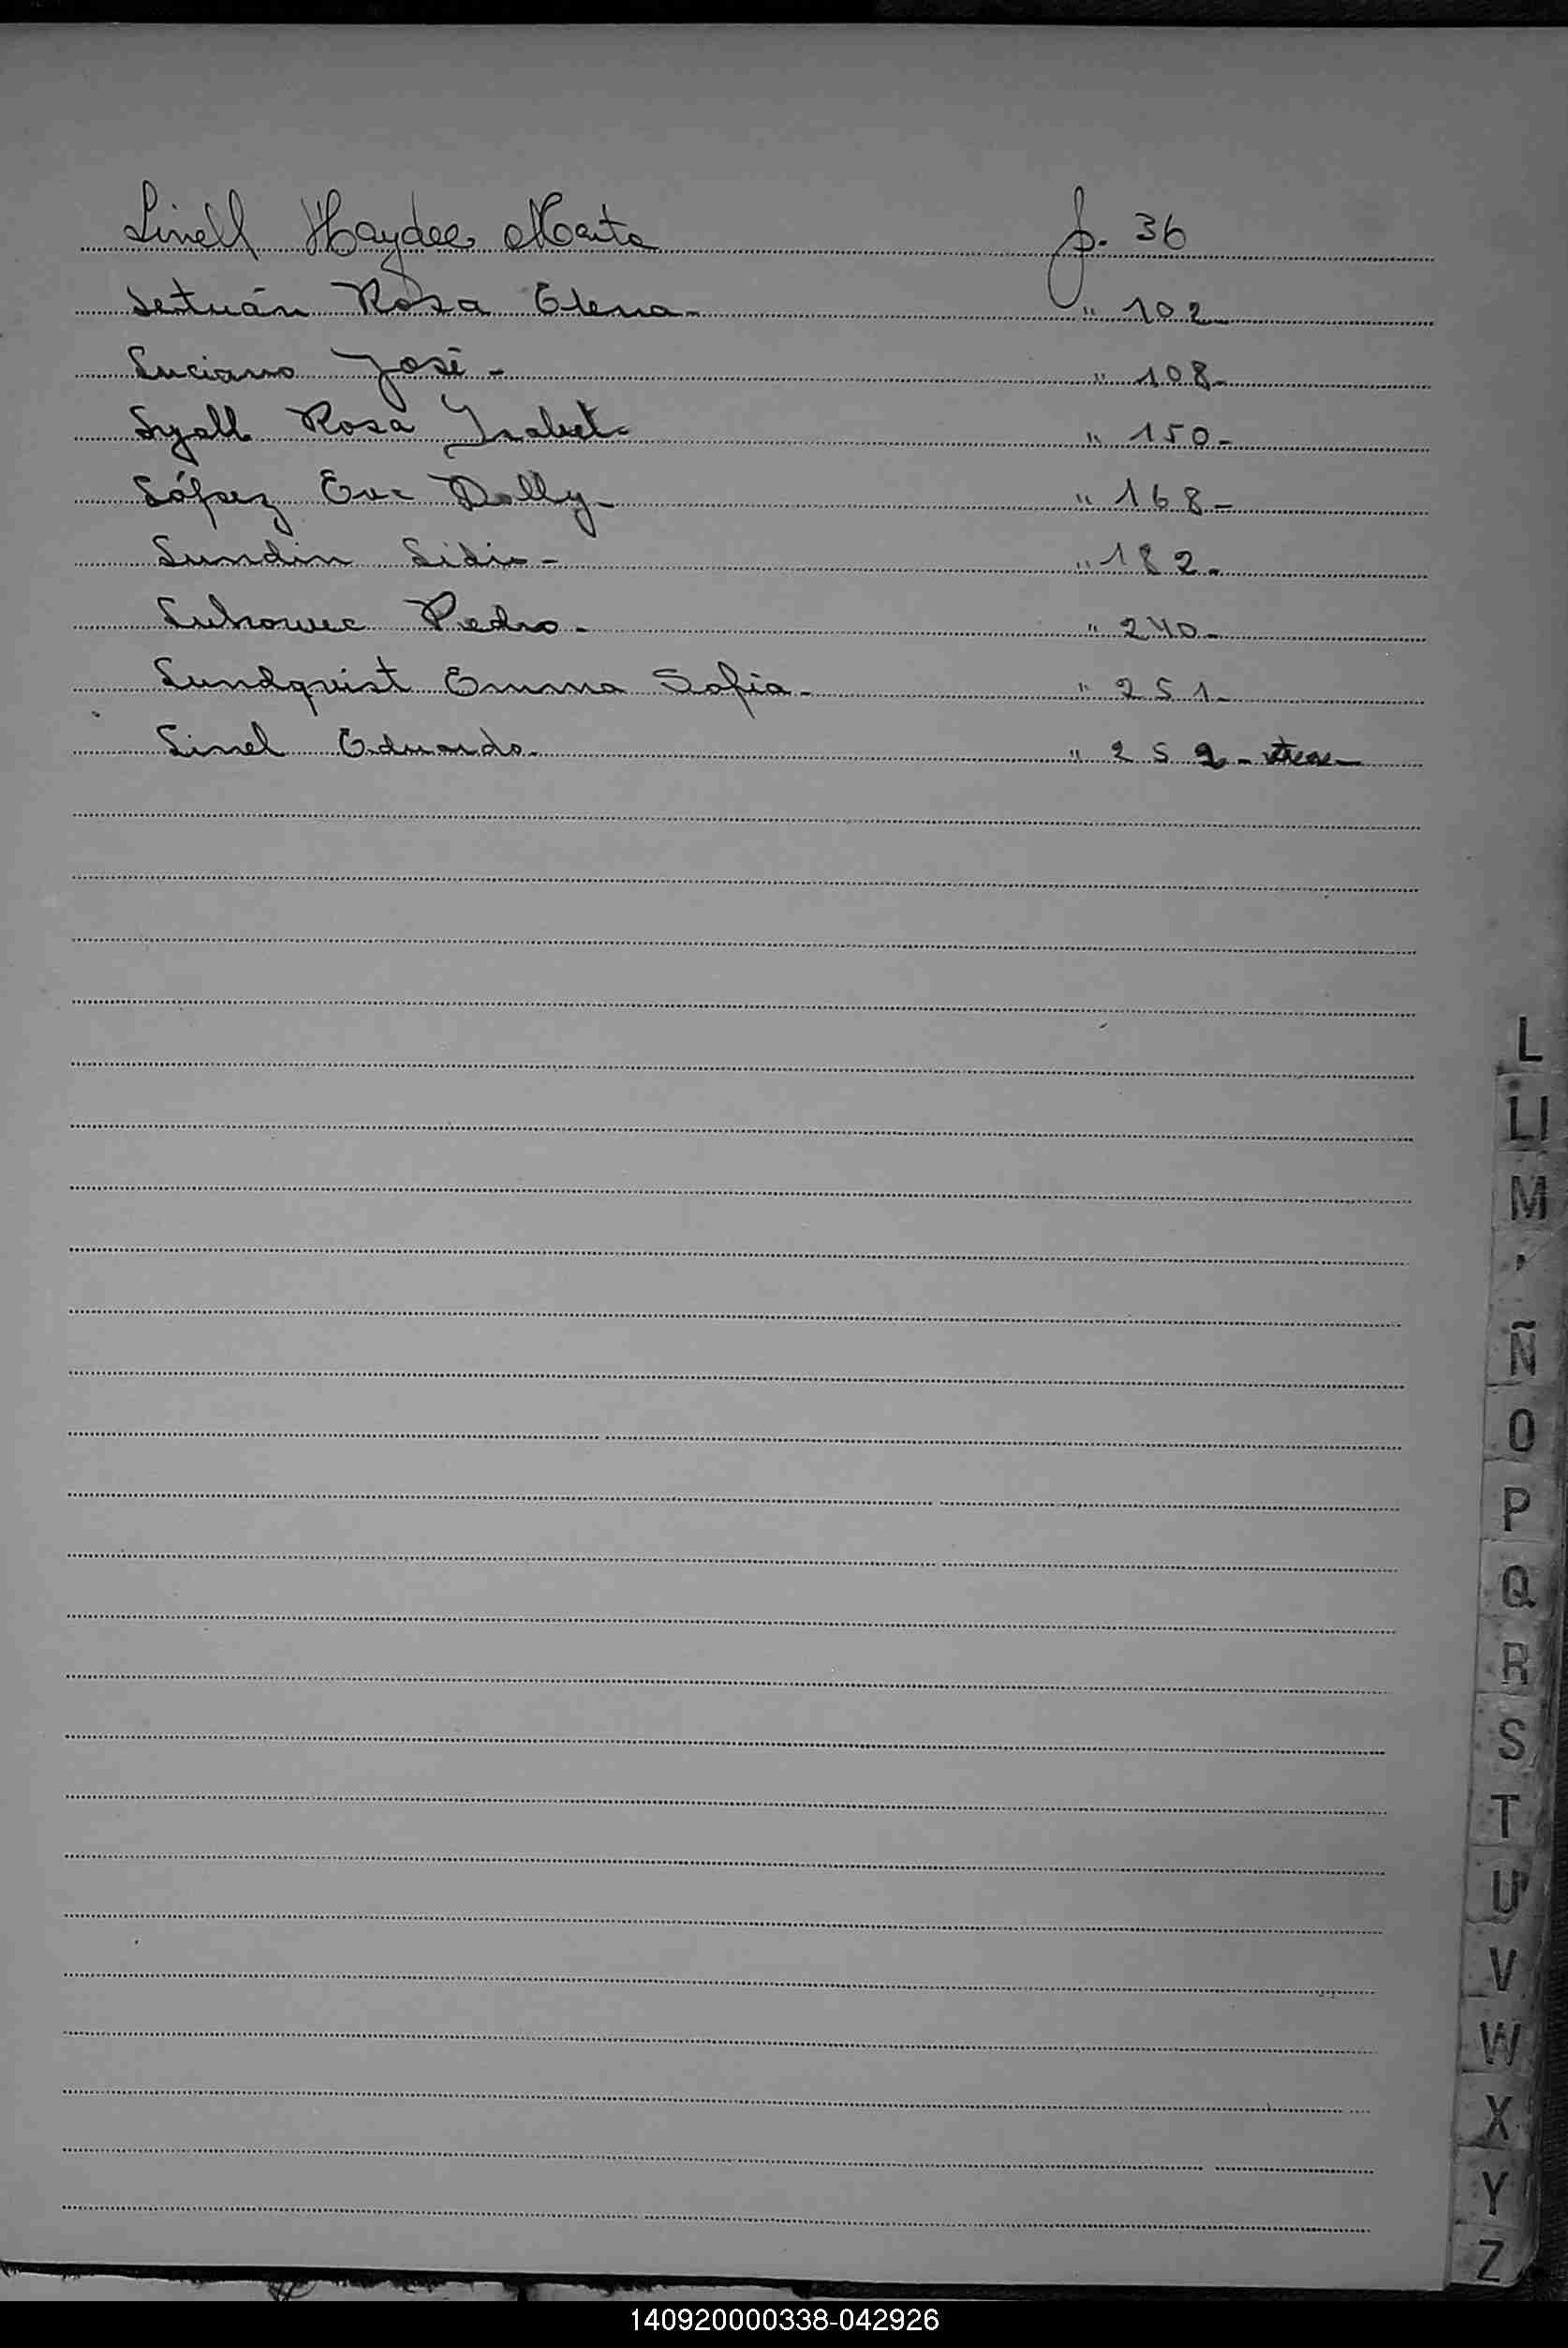 Linell Haydee Marta p. 36
Letuán Rosa Elena - " 102 -
Luciano José - " 108 -
Lyall Rosa Isabel - " 150 -
López Eva Dolly - " 168 -
Lundin Lidia - " 182 -
Pedro - " 240 -
Lundqvist Emma Sofia - " 251 -
Linel Eduardo - " 252 -
L
Ll
M
Ñ
O
P
Q
R
S
T
U
V
W
X
Y
Z
140920000338-042926